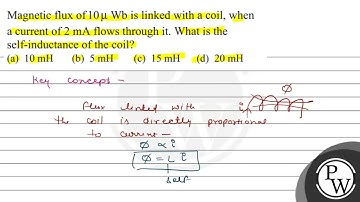 Magnetic flux of 10 μ Wb is linked with a coil, when
a current of 2 mA flows through it. What is the
self-inductance of the coil?
(a) 10 mH (b) 5 mH (c) 15 mH (d) 20 mH
Key concept –
ϕ
flux linked with i
the coil is directly proportional
to current –
ϕ ∝ i
ϕ = L i
self
P
W